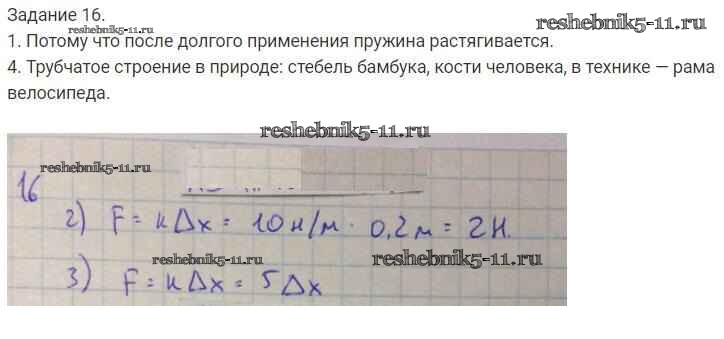 Задание 16.
reshebnik5-11.ru
reshebnik5-11.ru
1. Потому что после долгого применения пружина растягивается.
4. Трубчатое строение в природе: стебель бамбука, кости человека, в технике — рама
велосипеда.
reshebnik5-11.ru
reshebnik5-11.ru
16
2) F = kΔx = 10 н/м · 0,2 м = 2 Н.
reshebnik5-11.ru
reshebnik5-11.ru
3) F = kΔx = 5 Δx